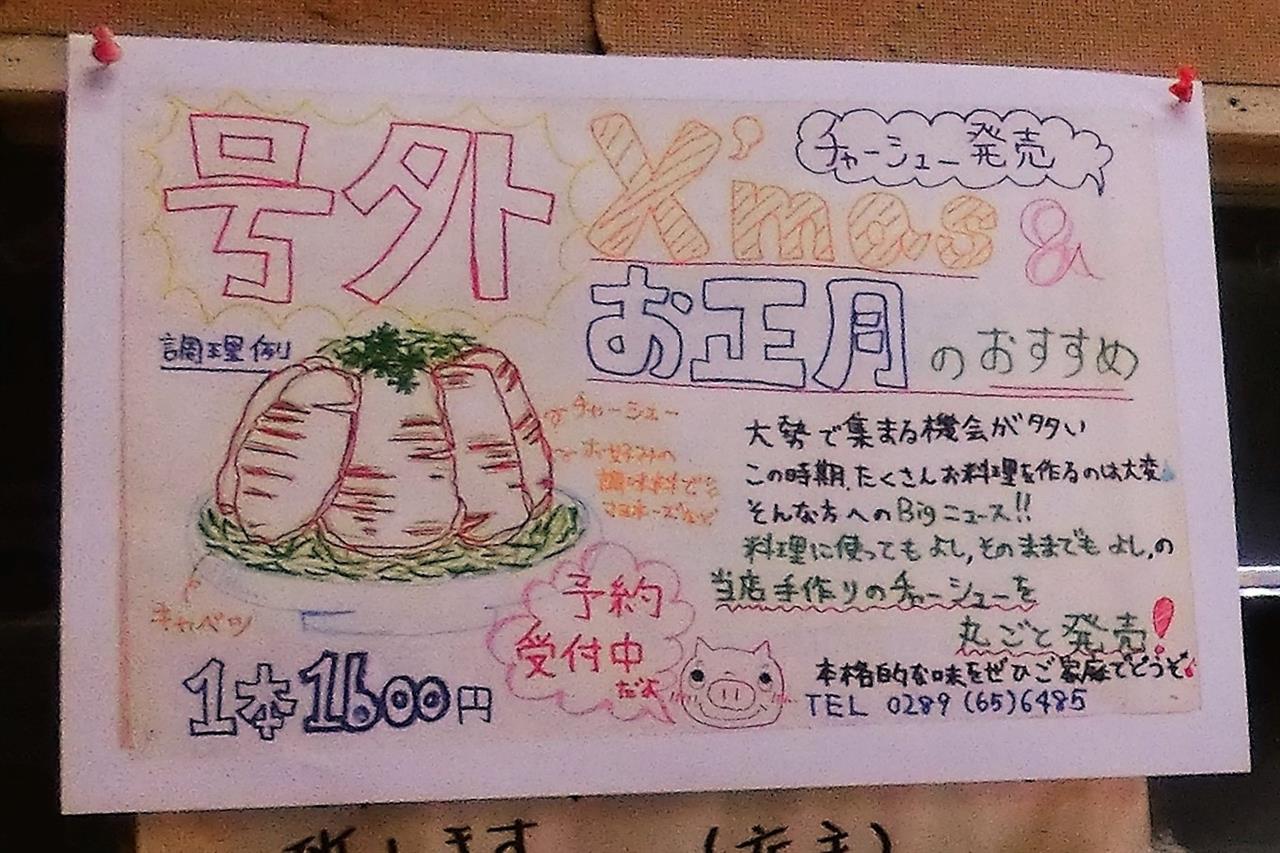 号外
X'mas &
チャーシュー発売
お正月のおすすめ
調理例
チャーシュー
お好みの
調味料で
マヨネーズなど
キャベツ
大勢で集まる機会が多い
この時期、たくさんお料理を作るのは大変
そんな方へのBigニュース!!
料理に使ってもよし,そのままでもよし,の
当店手作りのチャーシューを
丸ごと発売!
予約
受付中
だよ
本格的な味をぜひご家庭でどうぞ
TEL 0289 (65)6485
1本1600円
致します (店主)